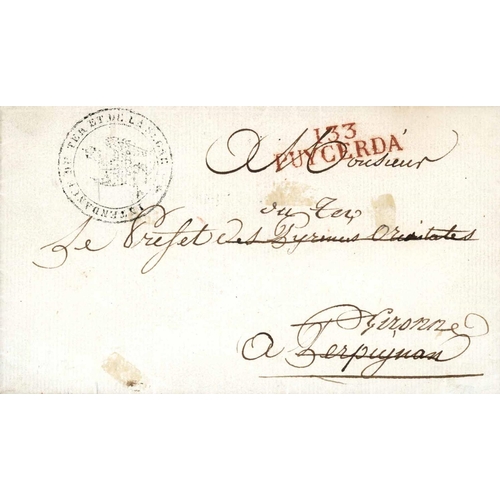 INTENDANCE DU TER ET DE LA SEGRE
133
PUYCERDA
A Monsieur
du Ter
Le Préfet des Pyrénées Orientales
Gironne
a Perpignan